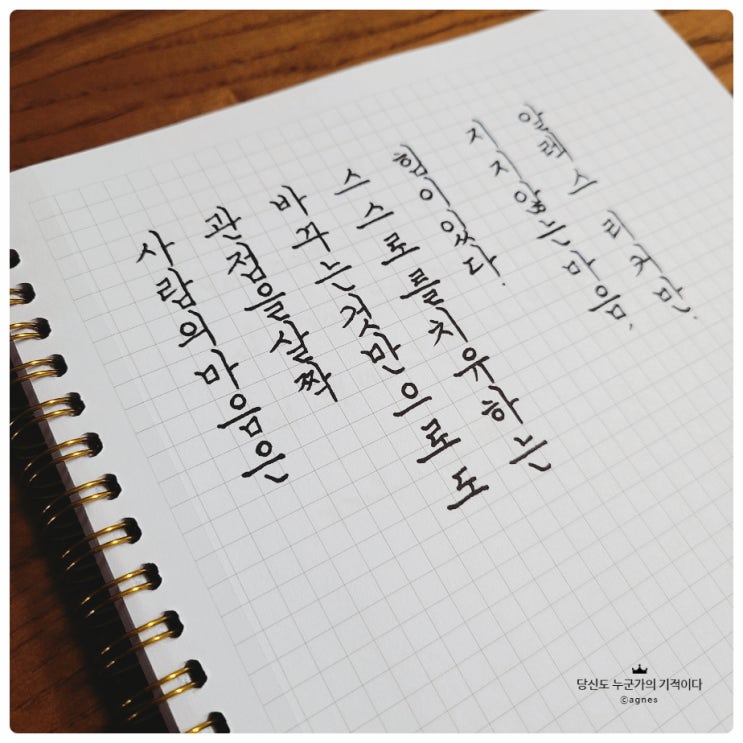 사람의 마음은
관점을 살짝
바꾸는 것만으로도
스스로를 치유하는
힘이 있다.
지지 않는 마음,
알렉스 리커만.
당신도 누군가의 기적이다
©agnes